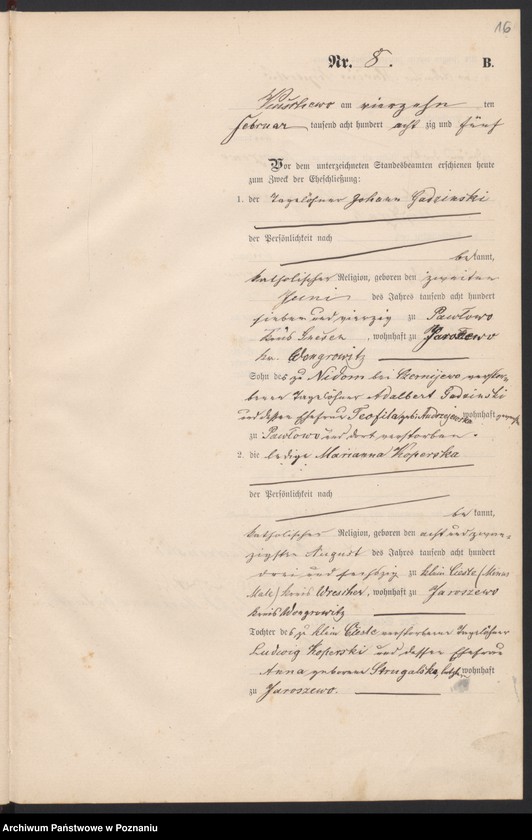 16
Nr. 8. B.
am vierzehn ten
Februar tausend acht hundert acht zig und fünf
Vor dem unterzeichneten Standesbeamten erschienen heute
zum Zweck der Eheschließung:
1. der Tagelöhner Johann Gadzinski
der Persönlichkeit nach
bekannt,
katholischer Religion, geboren den zweiten
Juni des Jahres tausend acht hundert
sieben und vierzig zu Pawłowo
Kreis Gnesen, wohnhaft zu Jaroszewo
Kr. Wongrowitz
Sohn des zu Nidom bei Czerniejewo verstor-
benen Tagelöhner Adalbert Gadzinski
und dessen Ehefrau Teofila geb. Andrzejewska wohnhaft
zu Pawłowo und dort verstorben.
2. die ledige Marianna Koperska
der Persönlichkeit nach
bekannt,
katholischer Religion, geboren den acht und zwan-
zigsten August des Jahres tausend acht hundert
drei und sechszig zu klein
Kreis Wreschen, wohnhaft zu Jaroszewo
Kreis Wongrowitz
Tochter des zu klein verstorbenen Tagelöhner
Ludwig Koperski und dessen Ehefrau
Anna geborene Strugalska, wohnhaft
zu Jaroszewo.
Archiwum Państwowe w Poznaniu